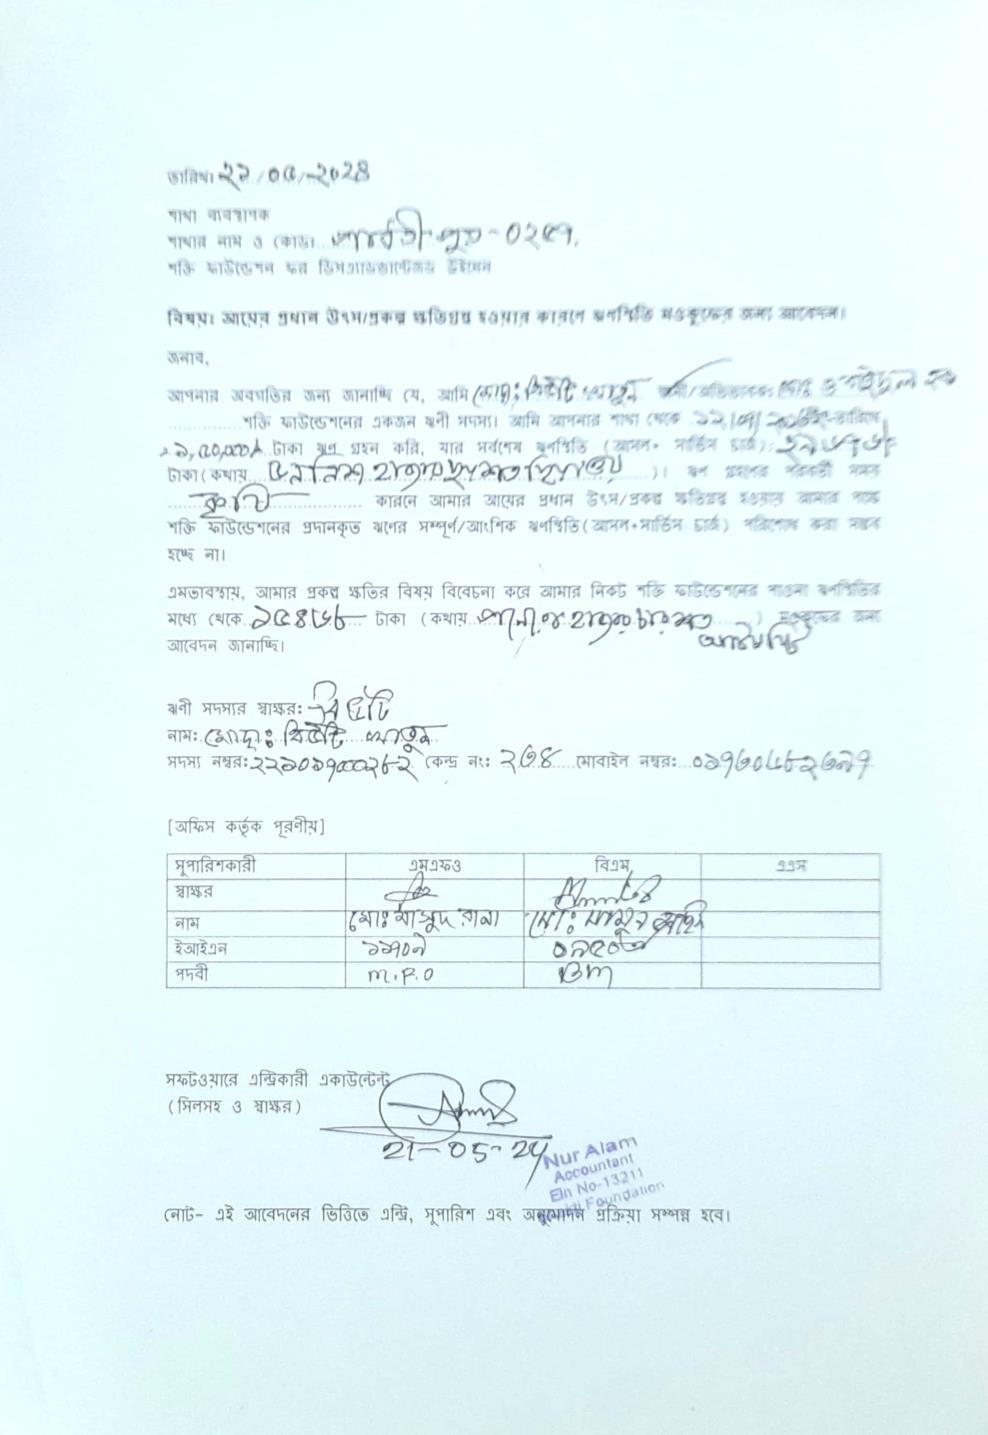 তারিখঃ ২১/০৫/২০২৪
শাখা ব্যবস্থাপক
শাখার নাম ও কোডঃ পার্বতীপুর-
শক্তি ফাউন্ডেশন ফর ডিসএ্যাডভান্টেজড উইমেন
বিষয়ঃ আয়ের প্রধান উৎস/প্রকল্প ক্ষতিগ্রস্থ হওয়ার কারণে ঋণস্থিতি মওকুফের জন্য আবেদন।
জনাব,
আপনার অবগতির জন্য জানাচ্ছি যে, আমি মোছাঃ বিউটি খাতুন স্বামী/অভিভাবকঃ
শক্তি ফাউন্ডেশনের একজন ঋণী সদস্য। আমি আপনার শাখা থেকে তারিখে
টাকা ঋণ গ্রহন করি, যার সর্বশেষ ঋণস্থিতি (আসল+ সার্ভিস চার্জ):
টাকা (কথায় )। ঋণ গ্রহণের পরবর্তী সময়
কারনে আমার আয়ের প্রধান উৎস/প্রকল্প ক্ষতিগ্রস্থ হওয়ায় আমার পক্ষে
শক্তি ফাউন্ডেশনের প্রদানকৃত ঋণের সম্পূর্ণ/আংশিক ঋণস্থিতি(আসল+সার্ভিস চার্জ) পরিশোধ করা সম্ভব
হচ্ছে না।
এমতাবস্থায়, আমার প্রকল্প ক্ষতির বিষয় বিবেচনা করে আমার নিকট শক্তি ফাউন্ডেশনের পাওনা ঋণস্থিতির
মধ্যে থেকে ১৫৪৬৮ টাকা (কথায় পনের হাজার চারশত ) মওকুফের জন্য
আটষট্টি
আবেদন জানাচ্ছি।
ঋণী সদস্যর স্বাক্ষর: বিউটি
নাম: মোছাঃ বিউটি খাতুন
সদস্য নম্বর: কেন্দ্র নং: ২৬৪ মোবাইল নম্বর:
[অফিস কর্তৃক পূরণীয়]
সুপারিশকারী এমএফও বিএম এএস
স্বাক্ষর
নাম মোঃ মাসুদ রানা মোঃ
ইআইএন ১১৭০৯
পদবী M.F.O BM
সফটওয়ারে এন্ট্রিকারী একাউন্টেন্ট
(সিলসহ ও স্বাক্ষর)
21-05-24
Nur Alam
Accountant
EIn No-13211
Foundation
নোট- এই আবেদনের ভিত্তিতে এন্ট্রি, সুপারিশ এবং অনুমোদন প্রক্রিয়া সম্পন্ন হবে।